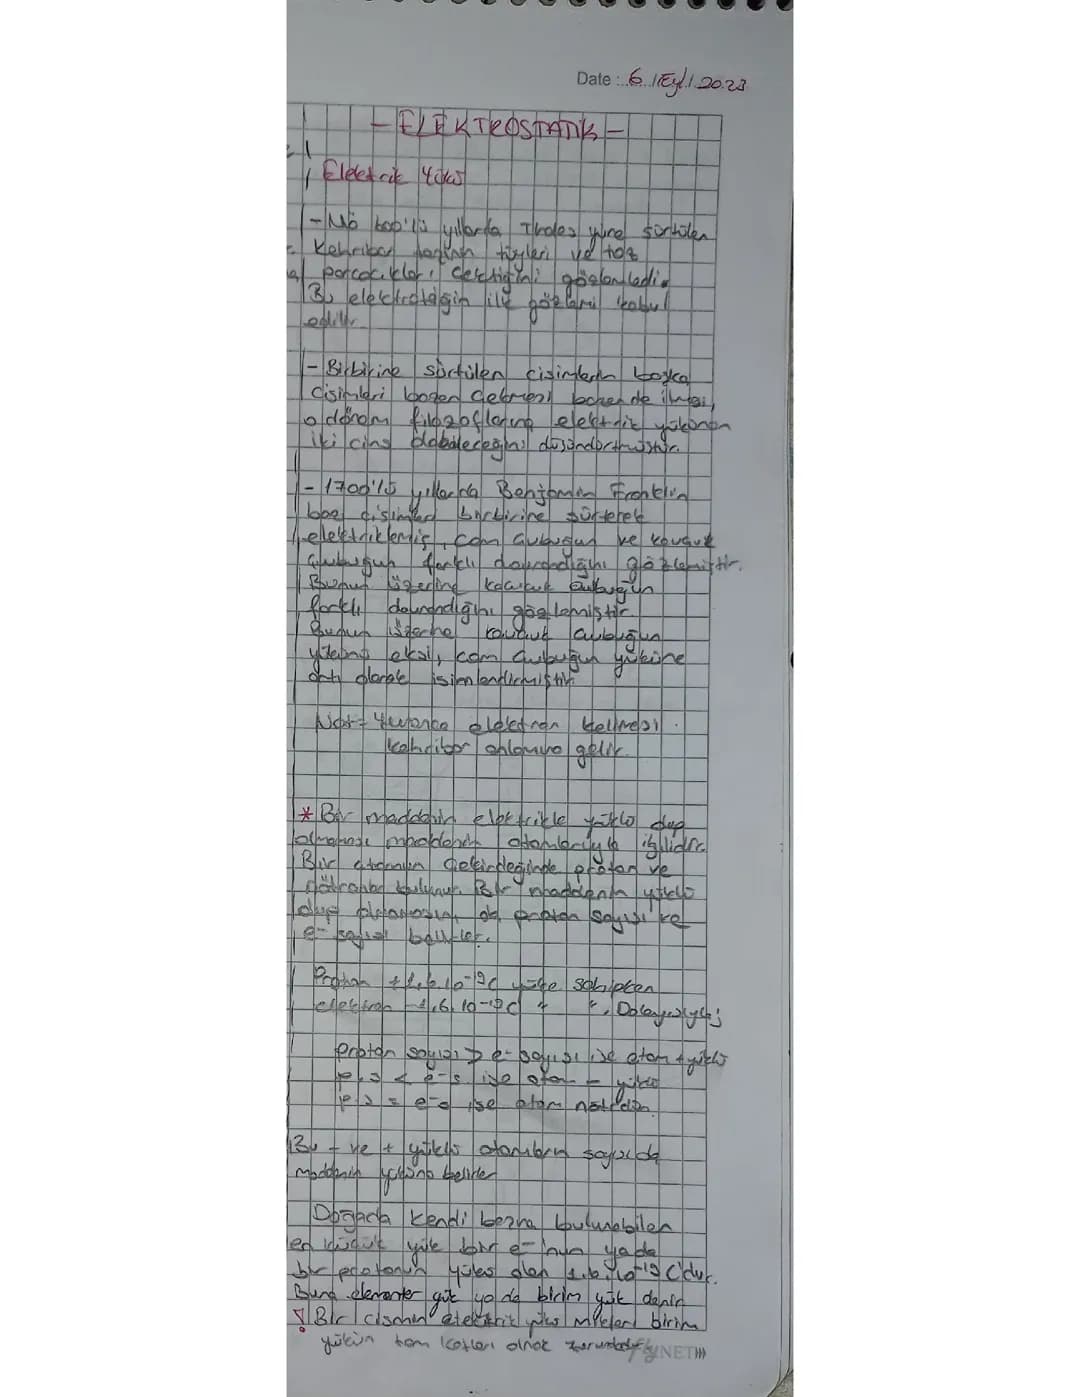 Date : 6 / Eyl / 2023
- ELEKTROSTATİK -
Elektrik Yükü
- MÖ 600'lü yıllarda Thales yüne sürtülen
Kehribar taşının tüyleri ve toz
parçacıkları çektiğini gözlemledi.
Bu elektrotağin ilk gözlemi kabul
edilir.
- Birbirine sürtülen cisimlerin başka
cisimleri bazen çekmesi bazen de itmesi,
o dönem filozoflarına elektrik yükünün
iki cins olabileceğini düşündürtmüştür.
- 1700'lü yıllarda Benjamin Franklin
bazı cisimleri birbirine sürterek
elektriklemiş, cam çubuğun ve kauçuk
çubuğun farklı davrandığını gözlemiştir.
Bunun üzerine kauçuk çubuğun
farklı davrandığını gözlemiştir.
Bunun üzerine kauçuk çubuğun
yüküne eksi, cam çubuğun yüküne
artı olarak isimlendirmiştir.
Not= Yunanca elektron kelimesi
kehribar anlamına gelir.
* Bir maddenin elektrikle yüklü olup
olmaması maddenin atomlarıyla ilgilidir.
Bir atomun çekirdeğinde proton ve
nötronlar bulunur. Bir maddenin yüklü
olup olmamasını proton sayısı ve
e- sayısı belirler.
Proton +1,6.10-19C yüke sahipken
elektron -1,6.10-19C " ". Dolayısıyla;
proton sayısı > e- sayısı ise atom + yüklü
p.s < e-s ise atom - yüklü
p.s = e-s ise atom nötrdür.
Bu - ve + yüklü atomların sayısı da
maddenin yükünü belirler
Doğada kendi başına bulunabilen
en küçük yük bir e-'nun ya da
bir protonun yükü olan 1,6.10-19 C'dur.
Buna elementer yük ya da birim yük denir.
! Bir cismin elektrik yükü miktarı birim
yükün tam katları olmak zorundadır.
FlyNET